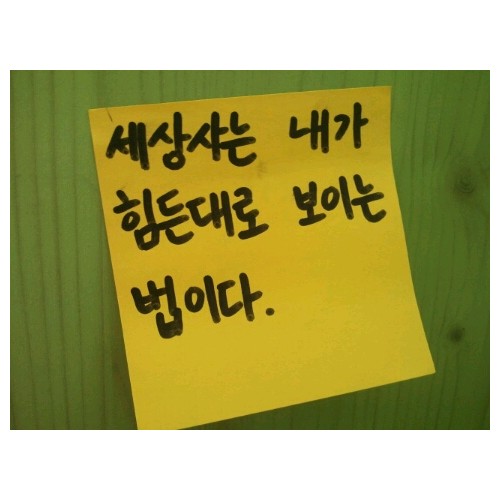 세상사는 내가
힘든대로 보이는
법이다.